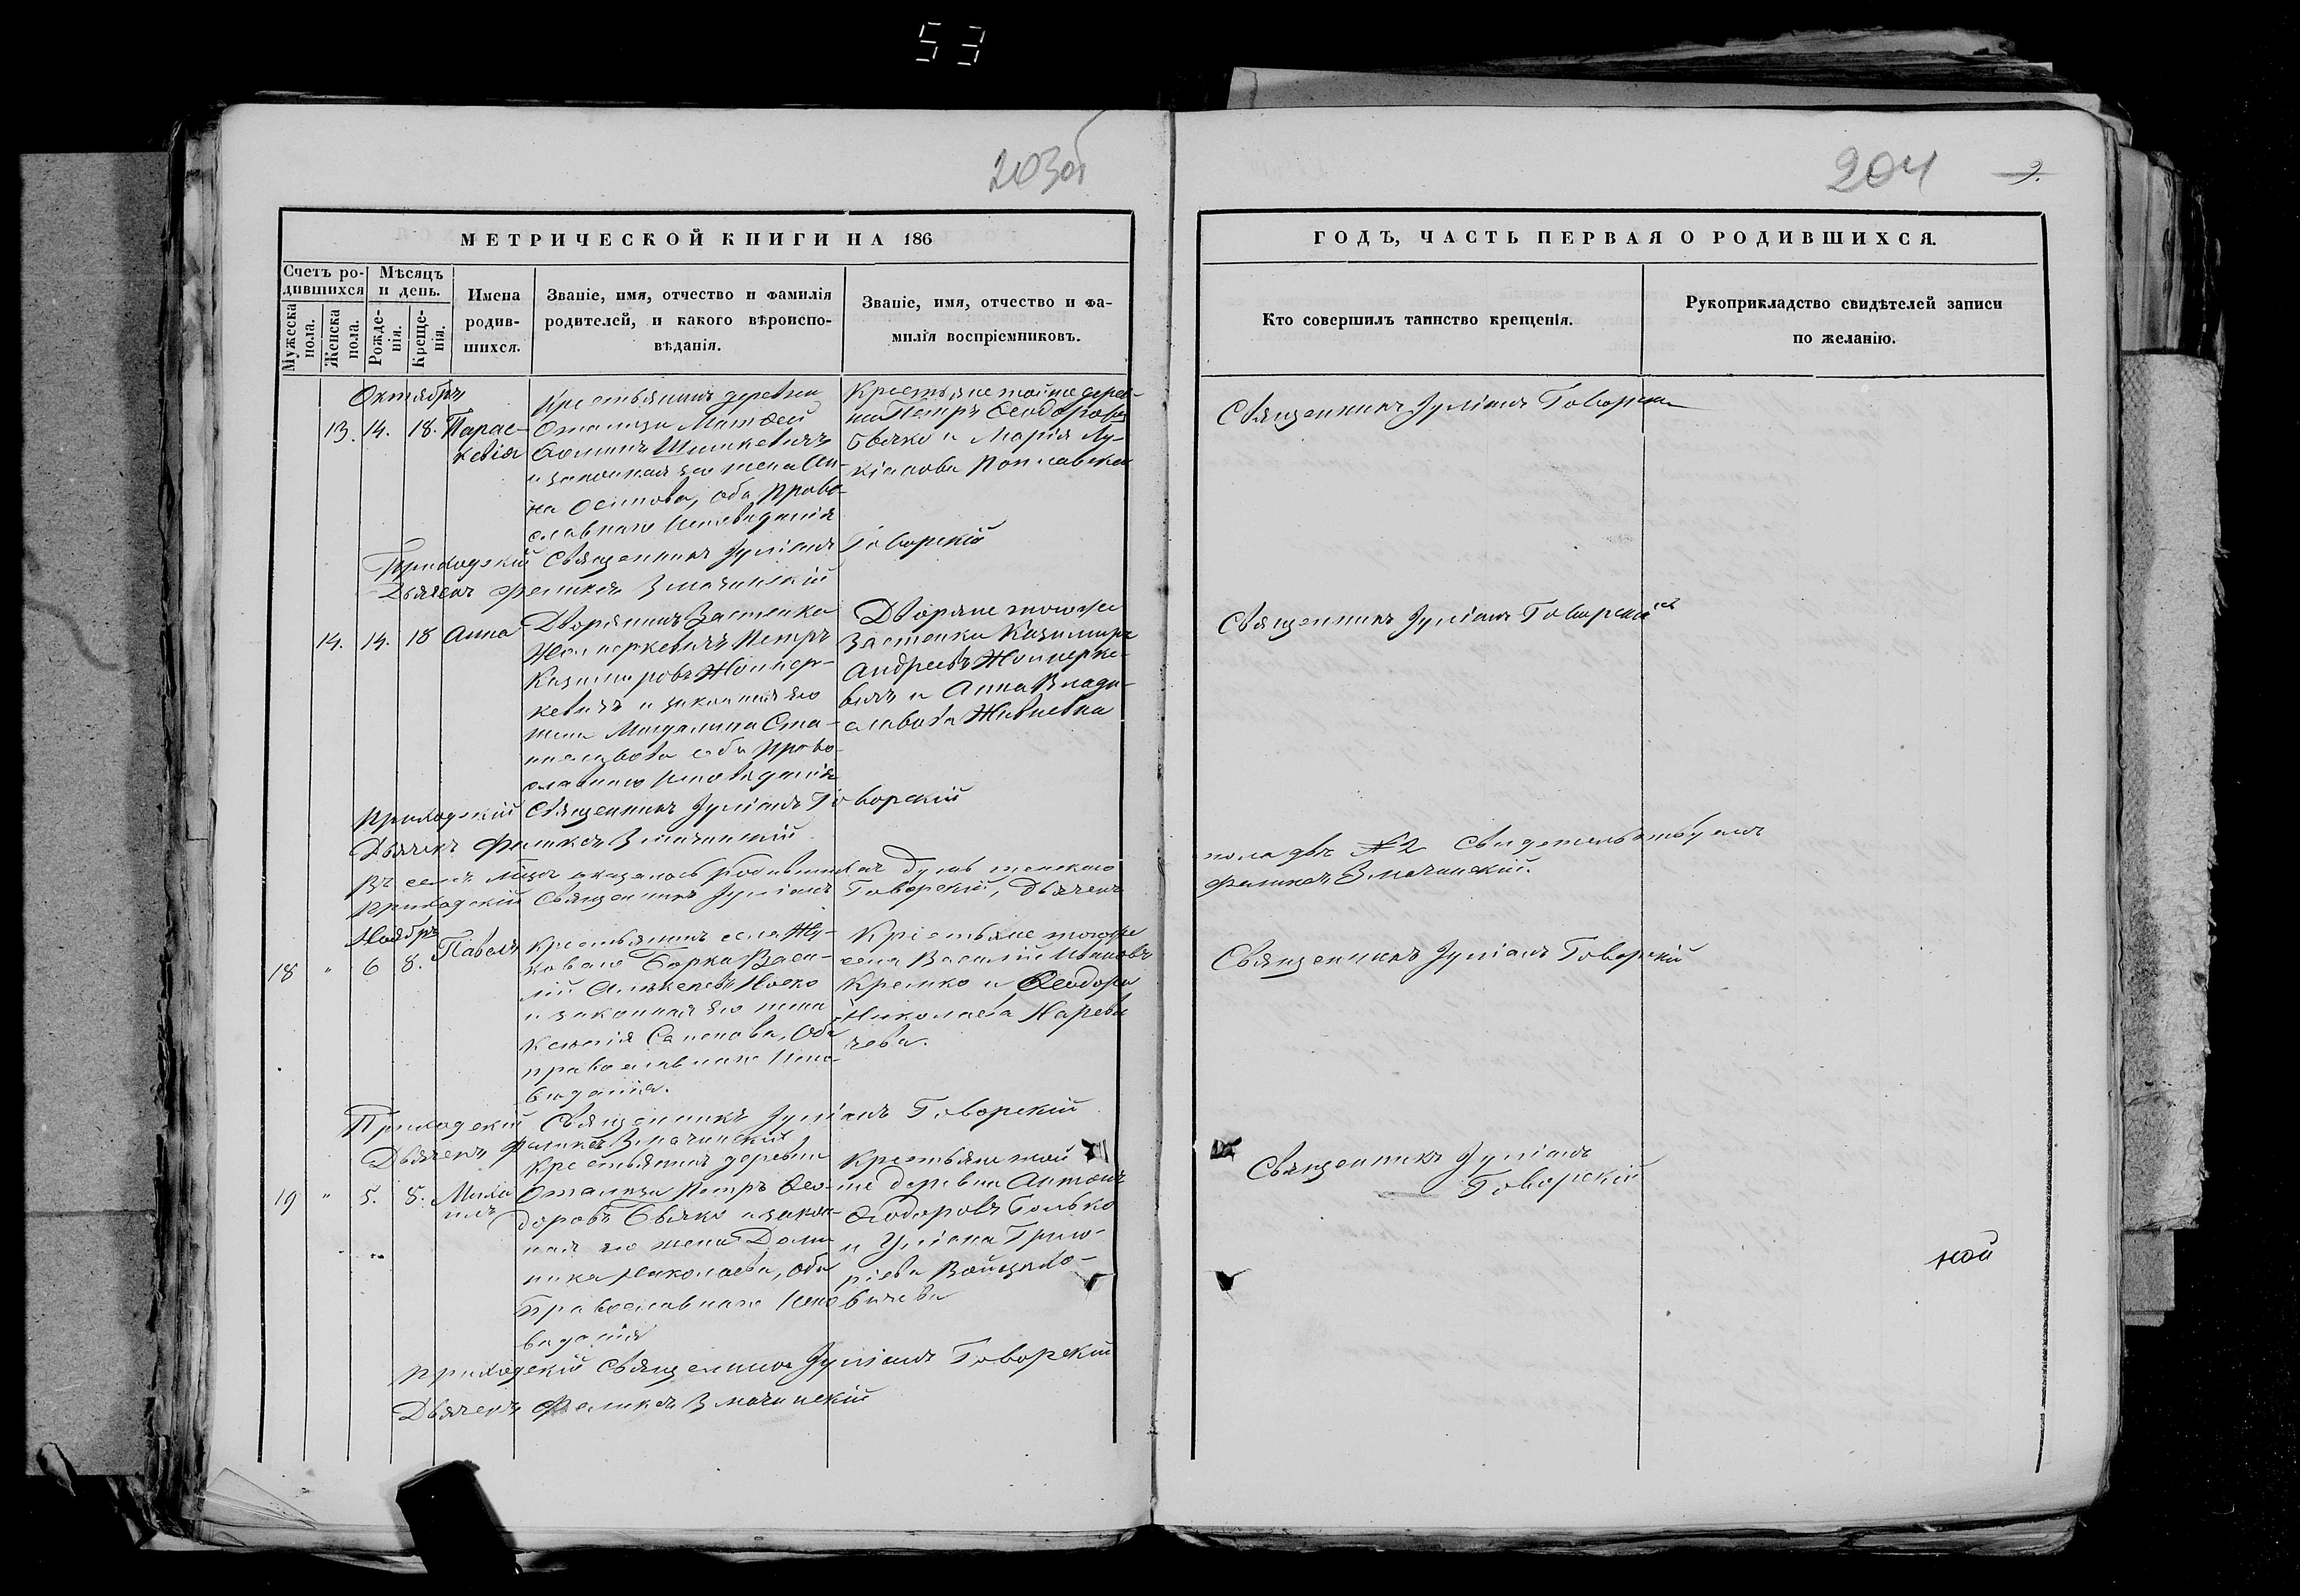 53
203об
204
9.
МЕТРИЧЕСКОЙ КНИГИ НА 186
ГОДЪ, ЧАСТЬ ПЕРВАЯ О РОДИВШИХСЯ.
Счетъ ро-
дившихся
Мужеска
пола.
Женска
пола.
Мѣсяцъ
и день.
Рожде-
нія.
Креще-
нія.
Имена
родив-
шихся.
Званіе, имя, отчество и фамилія
родителей, и какого вѣроиспо-
вѣданія.
Званіе, имя, отчество и фа-
милія воспріемниковъ.
Кто совершилъ таинство крещенія.
Рукоприкладство свидѣтелей записи
по желанію.
Октябрь
13. 14. 18. Парас-
кевія
Крестьянинъ деревни
Матѳей
Ѳоминъ Шишкевичъ
и законная его жена Ан-
на Осипова, оба право-
славнаго исповѣданія
Крестьяне той же дерев-
ни Петръ Ѳеодоровъ
и Марія Лу-
кіанова
Священникъ Іуліанъ Говорскій
Приходскій Священникъ Іуліанъ Говорскій
Дьячекъ Феликсъ Змачинскій
14. 14. 18 Анна
Дворянинъ Застенка
Жоммеркевичъ Петръ
Казимировъ Жоммер-
кевичъ и законная его
жена Магдалина Ста-
ниславова оба право-
славнаго исповѣданія
Дворяне тогоже
Застенка Казимиръ
Андреевъ Жоммерке-
вичъ и Анна Влади-
славова
Священникъ Іуліанъ Говорскій
Приходскій Священникъ Іуліанъ Говорскій
Дьячекъ Феликсъ Змачинскій
Въ семъ м-цѣ оказалось родившихся душъ женскаго
пола двѣ № 2 Свидетельствуемъ
Приходскій Священникъ Іуліанъ Говорскій, Дьячекъ
Феликсъ Змачинскій.
Ноябрь
18 " 6 8. Павелъ
Крестьянинъ села Жу-
коваго Борка Васи-
лій Алексеевъ Носко
и законная его жена
Ксенія Семенова, оба
православнаго испо-
вѣданія.
Крестьяне тогоже
села Василій Ивановъ
и Ѳеодора
Николаева Нареви-
чева.
Священникъ Іуліанъ Говорскій
Приходскій Священникъ Іуліанъ Говорскій
Дьячекъ Феликсъ Змачинскій
19 " 5. 8. Миха-
илъ
Крестьянинъ деревни
Петръ Ѳео-
доровъ и закон-
ная его жена Доми-
ника Николаева, оба
Православнаго испо-
вѣданія
Крестьяне той
же деревни Антонъ
Ѳеодоровъ
и Уліана Григо-
ріева Войцехо-
вичева
Священникъ Іуліанъ
Говорскій
ной
Приходскій Священникъ Іуліанъ Говорскій
Дьячекъ Феликсъ Змачинскій